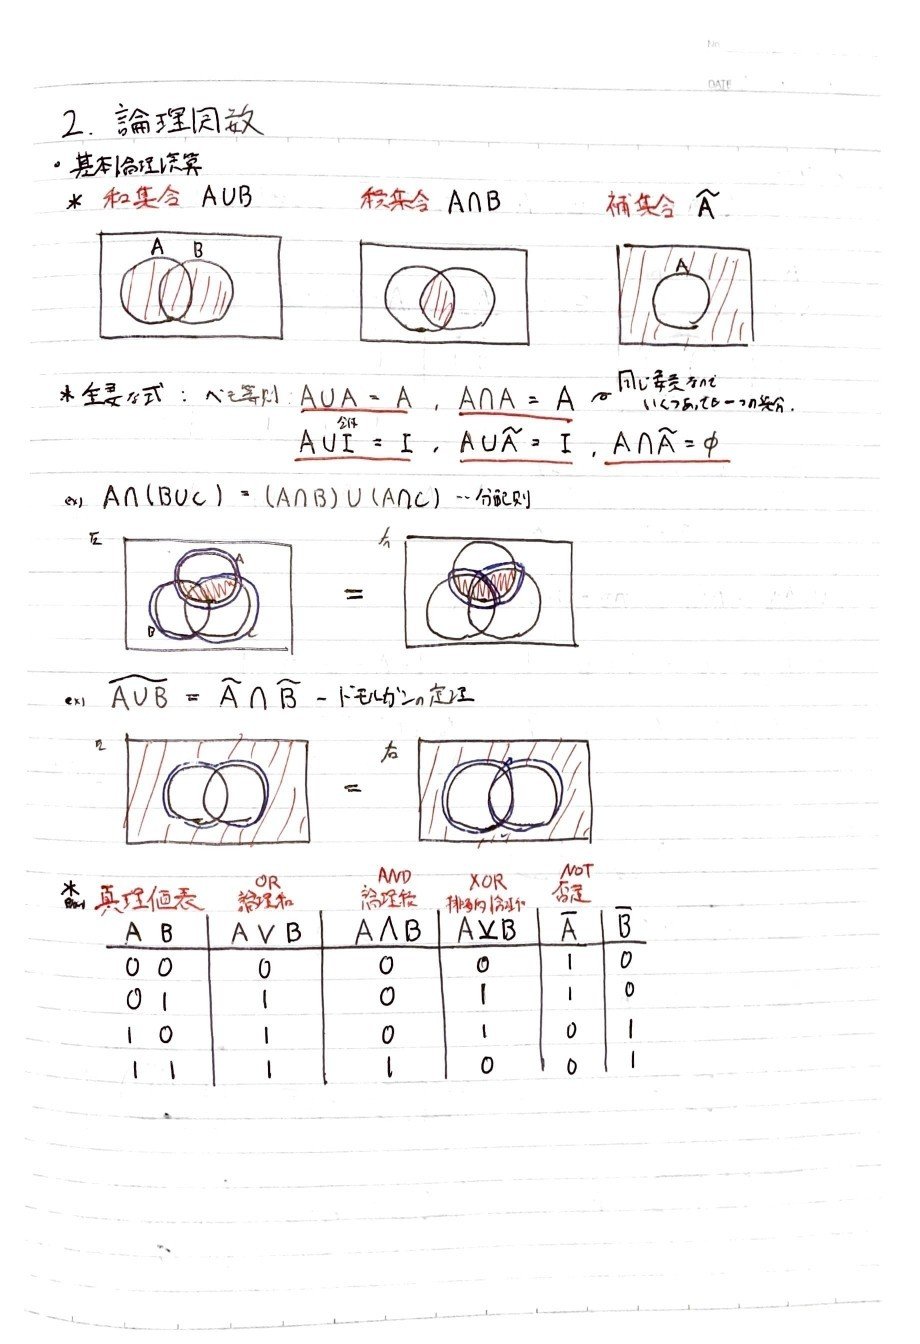 No.
DATE
2. 論理関数
・基本論理演算
* 和集合 A∪B 積集合 A∩B 補集合 Ã
A B
A
* 主要な式 : べき等則 A∪A = A , A∩A = A
同じ要素なので
いくつあっても一つの集合.
全体
A∪I = I , A∪Ã = I , A∩Ã = φ
ex) A∩(B∪C) = (A∩B)∪(A∩C) … 分配則
左 A B C = 右
ex) \widetilde{A∪B} = Ã∩B̃ - ドモルガンの定理
左 = 右
OR AND XOR NOT
* 真理値表 論理和 論理積 排他的論理和 否定
A B A∨B A∧B A⊻B A̅ B̅
0 0 0 0 0 1 0
0 1 1 0 1 1 0
1 0 1 0 1 0 1
1 1 1 1 0 0 1